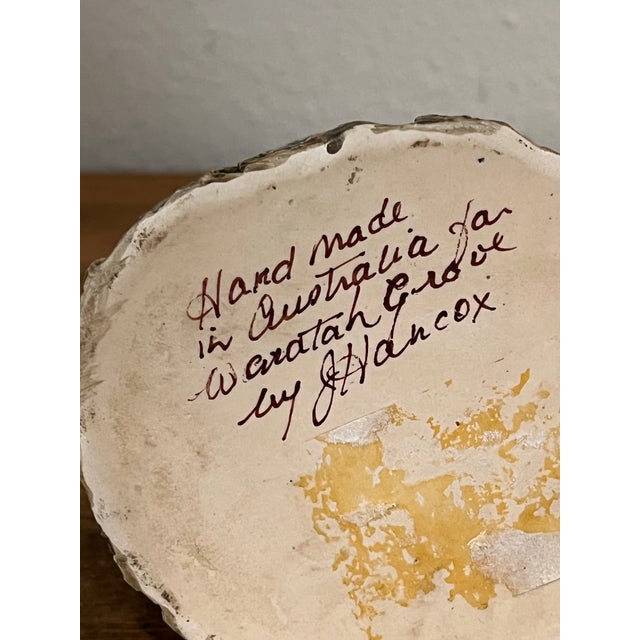 Hand made
in Australia for
Waratah Grove
by J Hancox